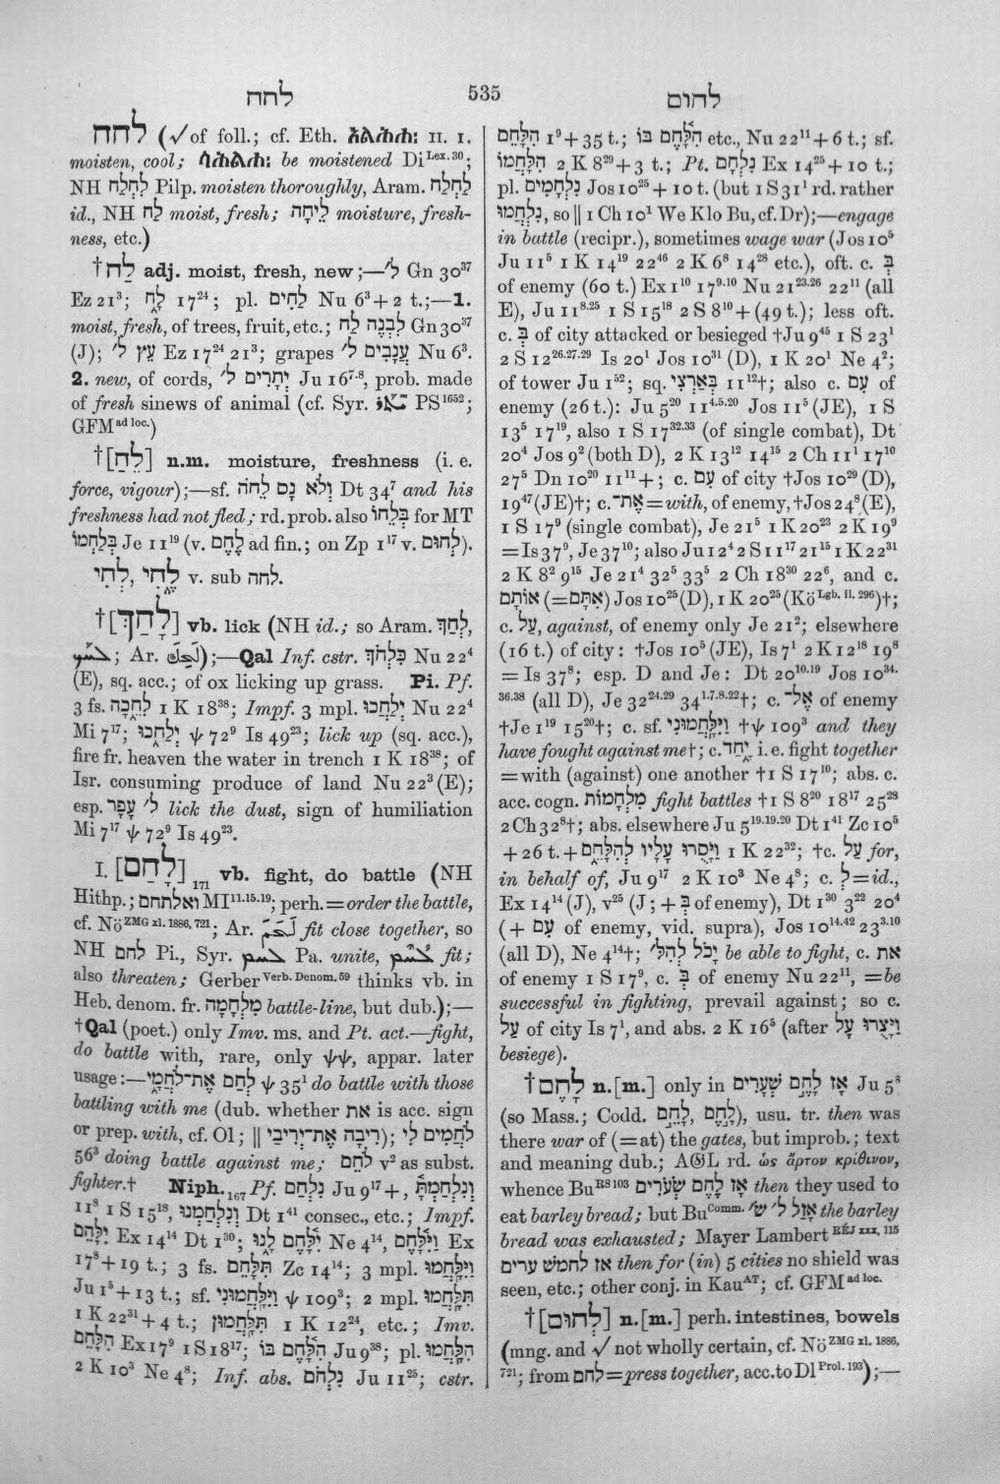 לחח
535
לחום
לחח (√of foll.; cf. Eth. አልሕሐ: II. 1.
moisten, cool; be moistened Di Lex. 30;
NH לַחְלֵחַ Pilp. moisten thoroughly, Aram. לַחְלַח
id., NH לַח moist, fresh; לֵיחָה moisture, fresh-
ness, etc.)
†לַח adj. moist, fresh, new;—ל׳ Gn 30³⁷
Ez 21³; לָח 17²⁴; pl. לַחִים Nu 6³+2 t.;—1.
moist, fresh, of trees, fruit, etc.; לִבְנֶה לַח Gn 30³⁷
(J); עֵץ ל׳ Ez 17²⁴ 21³; grapes עֲנָבִים ל׳ Nu 6³.
2. new, of cords, יְתָרִים ל׳ Ju 16⁷·⁸, prob. made
of fresh sinews of animal (cf. Syr. PS¹⁶⁵²;
GFM ad loc.)
†[לֵחַ] n.m. moisture, freshness (i. e.
force, vigour);—sf. וְלֹא נָס לֵחֹה Dt 34⁷ and his
freshness had not fled; rd. prob. also בְּלֵחוֹ for MT
בְּלַחְמוֹ Je 11¹⁹ (v. לֶחֶם ad fin.; on Zp 1¹⁷ v. לְחוּם).
לְחִי, לֶחִי v. sub לחה.
†[לָחַךְ] vb. lick (NH id.; so Aram. לְחַךְ,
; Ar. );—Qal Inf. cstr. כִּלְחֹךְ Nu 22⁴
(E), sq. acc.; of ox licking up grass. Pi. Pf.
3 fs. לִחֵכָה 1 K 18³⁸; Impf. 3 mpl. יְלַחֲכוּ Nu 22⁴
Mi 7¹⁷; יְלַחֵכוּ ψ 72⁹ Is 49²³; lick up (sq. acc.),
fire fr. heaven the water in trench 1 K 18³⁸; of
Isr. consuming produce of land Nu 22³ (E);
esp. ל׳ עָפָר lick the dust, sign of humiliation
Mi 7¹⁷ ψ 72⁹ Is 49²³.
I. [לָחַם]₁₇₁ vb. fight, do battle (NH
Hithp.; ואלתחם MI¹¹·¹⁵·¹⁹; perh.=order the battle,
cf. Nö ZMG xl. 1886, 721; Ar. fit close together, so
NH לחם Pi., Syr. Pa. unite, fit;
also threaten; Gerber Verb. Denom. 59 thinks vb. in
Heb. denom. fr. מִלְחָמָה battle-line, but dub.);—
†Qal (poet.) only Imv. ms. and Pt. act.—fight,
do battle with, rare, only ψψ, appar. later
usage:—לְחַם אֶת־לֹחֲמָי ψ 35¹ do battle with those
battling with me (dub. whether את is acc. sign
or prep. with, cf. Ol; || רִיבָה אֶת־יְרִיבַי); לֹחֲמִים לִי
56³ doing battle against me; לֹחֵם v² as subst.
fighter.† Niph.₁₆₇ Pf. נִלְחַם Ju 9¹⁷+, וְנִלְחַמְתָּ
11⁸ 1 S 15¹⁸, וְנִלְחַמְנוּ Dt 1⁴¹ consec., etc.; Impf.
יִלָּחֵם Ex 14¹⁴ Dt 1³⁰; יִלָּחֶם לָנוּ Ne 4¹⁴, וַיִּלָּחֶם Ex
17⁸+19 t.; 3 fs. תִּלָּחֵם Zc 14¹⁴; 3 mpl. וַיִּלָּחֲמוּ
Ju 1⁵+13 t.; sf. וַיִּלָּחֲמוּנִי ψ 109³; 2 mpl. תִּלָּחֲמוּ
1 K 22³¹+4 t.; תִּלָּחֲמוּן 1 K 12²⁴, etc.; Imv.
הִלָּחֵם Ex 17⁹ 1 S 18¹⁷; הִלָּחֶם בּוֹ Ju 9³⁸; pl. הִלָּחֲמוּ
2 K 10³ Ne 4⁸; Inf. abs. נִלְחֹם Ju 11²⁵; cstr.
הִלָּחֵם 1⁹+35 t.; הִלָּחֶם בּוֹ etc., Nu 22¹¹+6 t.; sf.
הִלָּחֲמוֹ 2 K 8²⁹+3 t.; Pt. נִלְחָם Ex 14²⁵+10 t.;
pl. נִלְחָמִים Jos 10²⁵+10 t. (but 1 S 31¹ rd. rather
נִלְחֲמוּ, so || 1 Ch 10¹ We Klo Bu, cf. Dr);—engage
in battle (recipr.), sometimes wage war (Jos 10⁵
Ju 11⁵ 1 K 14¹⁹ 22⁴⁶ 2 K 6⁸ 14²⁸ etc.), oft. c. בְּ
of enemy (60 t.) Ex 1¹⁰ 17⁹·¹⁰ Nu 21²³·²⁶ 22¹¹ (all
E), Ju 11⁸·²⁵ 1 S 15¹⁸ 2 S 8¹⁰+(49 t.); less oft.
c. בְּ of city attacked or besieged †Ju 9⁴⁵ 1 S 23¹
2 S 12²⁶·²⁷·²⁹ Is 20¹ Jos 10³¹ (D), 1 K 20¹ Ne 4²;
of tower Ju 1⁵²; sq. בְּאַרְצִי 11¹²†; also c. עִם of
enemy (26 t.): Ju 5²⁰ 11⁴·⁵·²⁰ Jos 11⁵ (JE), 1 S
13⁵ 17¹⁹, also 1 S 17³²·³³ (of single combat), Dt
20⁴ Jos 9² (both D), 2 K 13¹² 14¹⁵ 2 Ch 11¹ 17¹⁰
27⁵ Dn 10²⁰ 11¹¹+; c. עִם of city †Jos 10²⁹ (D),
19⁴⁷ (JE)†; c. אֶת־=with, of enemy, †Jos 24⁸ (E),
1 S 17⁹ (single combat), Je 21⁵ 1 K 20²³ 2 K 19⁹
=Is 37⁹, Je 37¹⁰; also Ju 12⁴ 2 S 11¹⁷ 21¹⁵ 1 K 22³¹
2 K 8² 9¹⁵ Je 21⁴ 32⁵ 33⁵ 2 Ch 18³⁰ 22⁶, and c.
אוֹתָם (=אִתָּם) Jos 10²⁵ (D), 1 K 20²⁵ (Kö Lgb. II. 296)†;
c. עַל, against, of enemy only Je 21²; elsewhere
(16 t.) of city: †Jos 10⁵ (JE), Is 7¹ 2 K 12¹⁸ 19⁸
= Is 37⁸; esp. D and Je: Dt 20¹⁰·¹⁹ Jos 10³⁴·
³⁶·³⁸ (all D), Je 32²⁴·²⁹ 34¹·⁷·⁸·²²†; c. אֶל־ of enemy
†Je 1¹⁹ 15²⁰†; c. sf. וַיִּלָּחֲמוּנִי †ψ 109³ and they
have fought against me†; c. יַחַד, i.e. fight together
=with (against) one another †1 S 17¹⁰; abs. c.
acc. cogn. מִלְחָמוֹת fight battles †1 S 8²⁰ 18¹⁷ 25²⁸
2 Ch 32⁸†; abs. elsewhere Ju 5¹⁹·¹⁹·²⁰ Dt 1⁴¹ Zc 10⁵
+26 t.+וַיָּסֻרוּ עָלָיו לְהִלָּחֵם 1 K 22³²; †c. עַל for,
in behalf of, Ju 9¹⁷ 2 K 10³ Ne 4⁸; c. לְ=id.,
Ex 14¹⁴ (J), v²⁵ (J; + בְּ of enemy), Dt 1³⁰ 3²² 20⁴
(+ עִם of enemy, vid. supra), Jos 10¹⁴·⁴² 23³·¹⁰
(all D), Ne 4¹⁴†; יָכֹל לְהִלּ׳ be able to fight, c. את
of enemy 1 S 17⁹, c. בְּ of enemy Nu 22¹¹, =be
successful in fighting, prevail against; so c.
עַל of city Is 7¹, and abs. 2 K 16⁵ (after וַיָּצֻרוּ עַל
besiege).
†לָחֶם n.[m.] only in אָז לָחֶם שְׁעָרִים Ju 5⁸
(so Mass.; Codd. לָחֵם, לָחֶם), usu. tr. then was
there war of (=at) the gates, but improb.; text
and meaning dub.; A𝔊L rd. ὡς ἄρτον κρίθινον,
whence Bu RS 103 אָז לֶחֶם שְׂעֹרִים then they used to
eat barley bread; but Bu Comm. אָזַל ל׳ שׂ׳ the barley
bread was exhausted; Mayer Lambert RÉJ xxx, 115
אז לחמש ערים then for (in) 5 cities no shield was
seen, etc.; other conj. in Kau AT; cf. GFM ad loc.
†[לְחוּם] n.[m.] perh. intestines, bowels
(mng. and √ not wholly certain, cf. Nö ZMG xl. 1886,
721; from לחם=press together, acc. to Dl Prol. 193);—